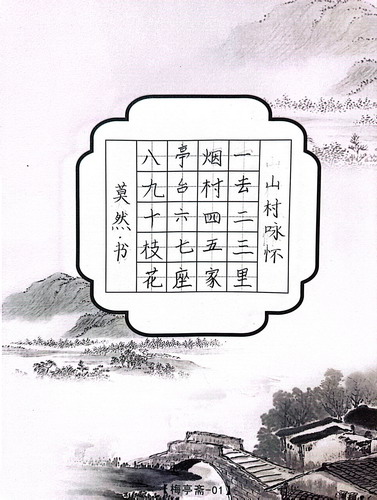 山村咏怀
一去二三里
烟村四五家
亭台六七座
八九十枝花
莫然·书
【梅亭斋-01】